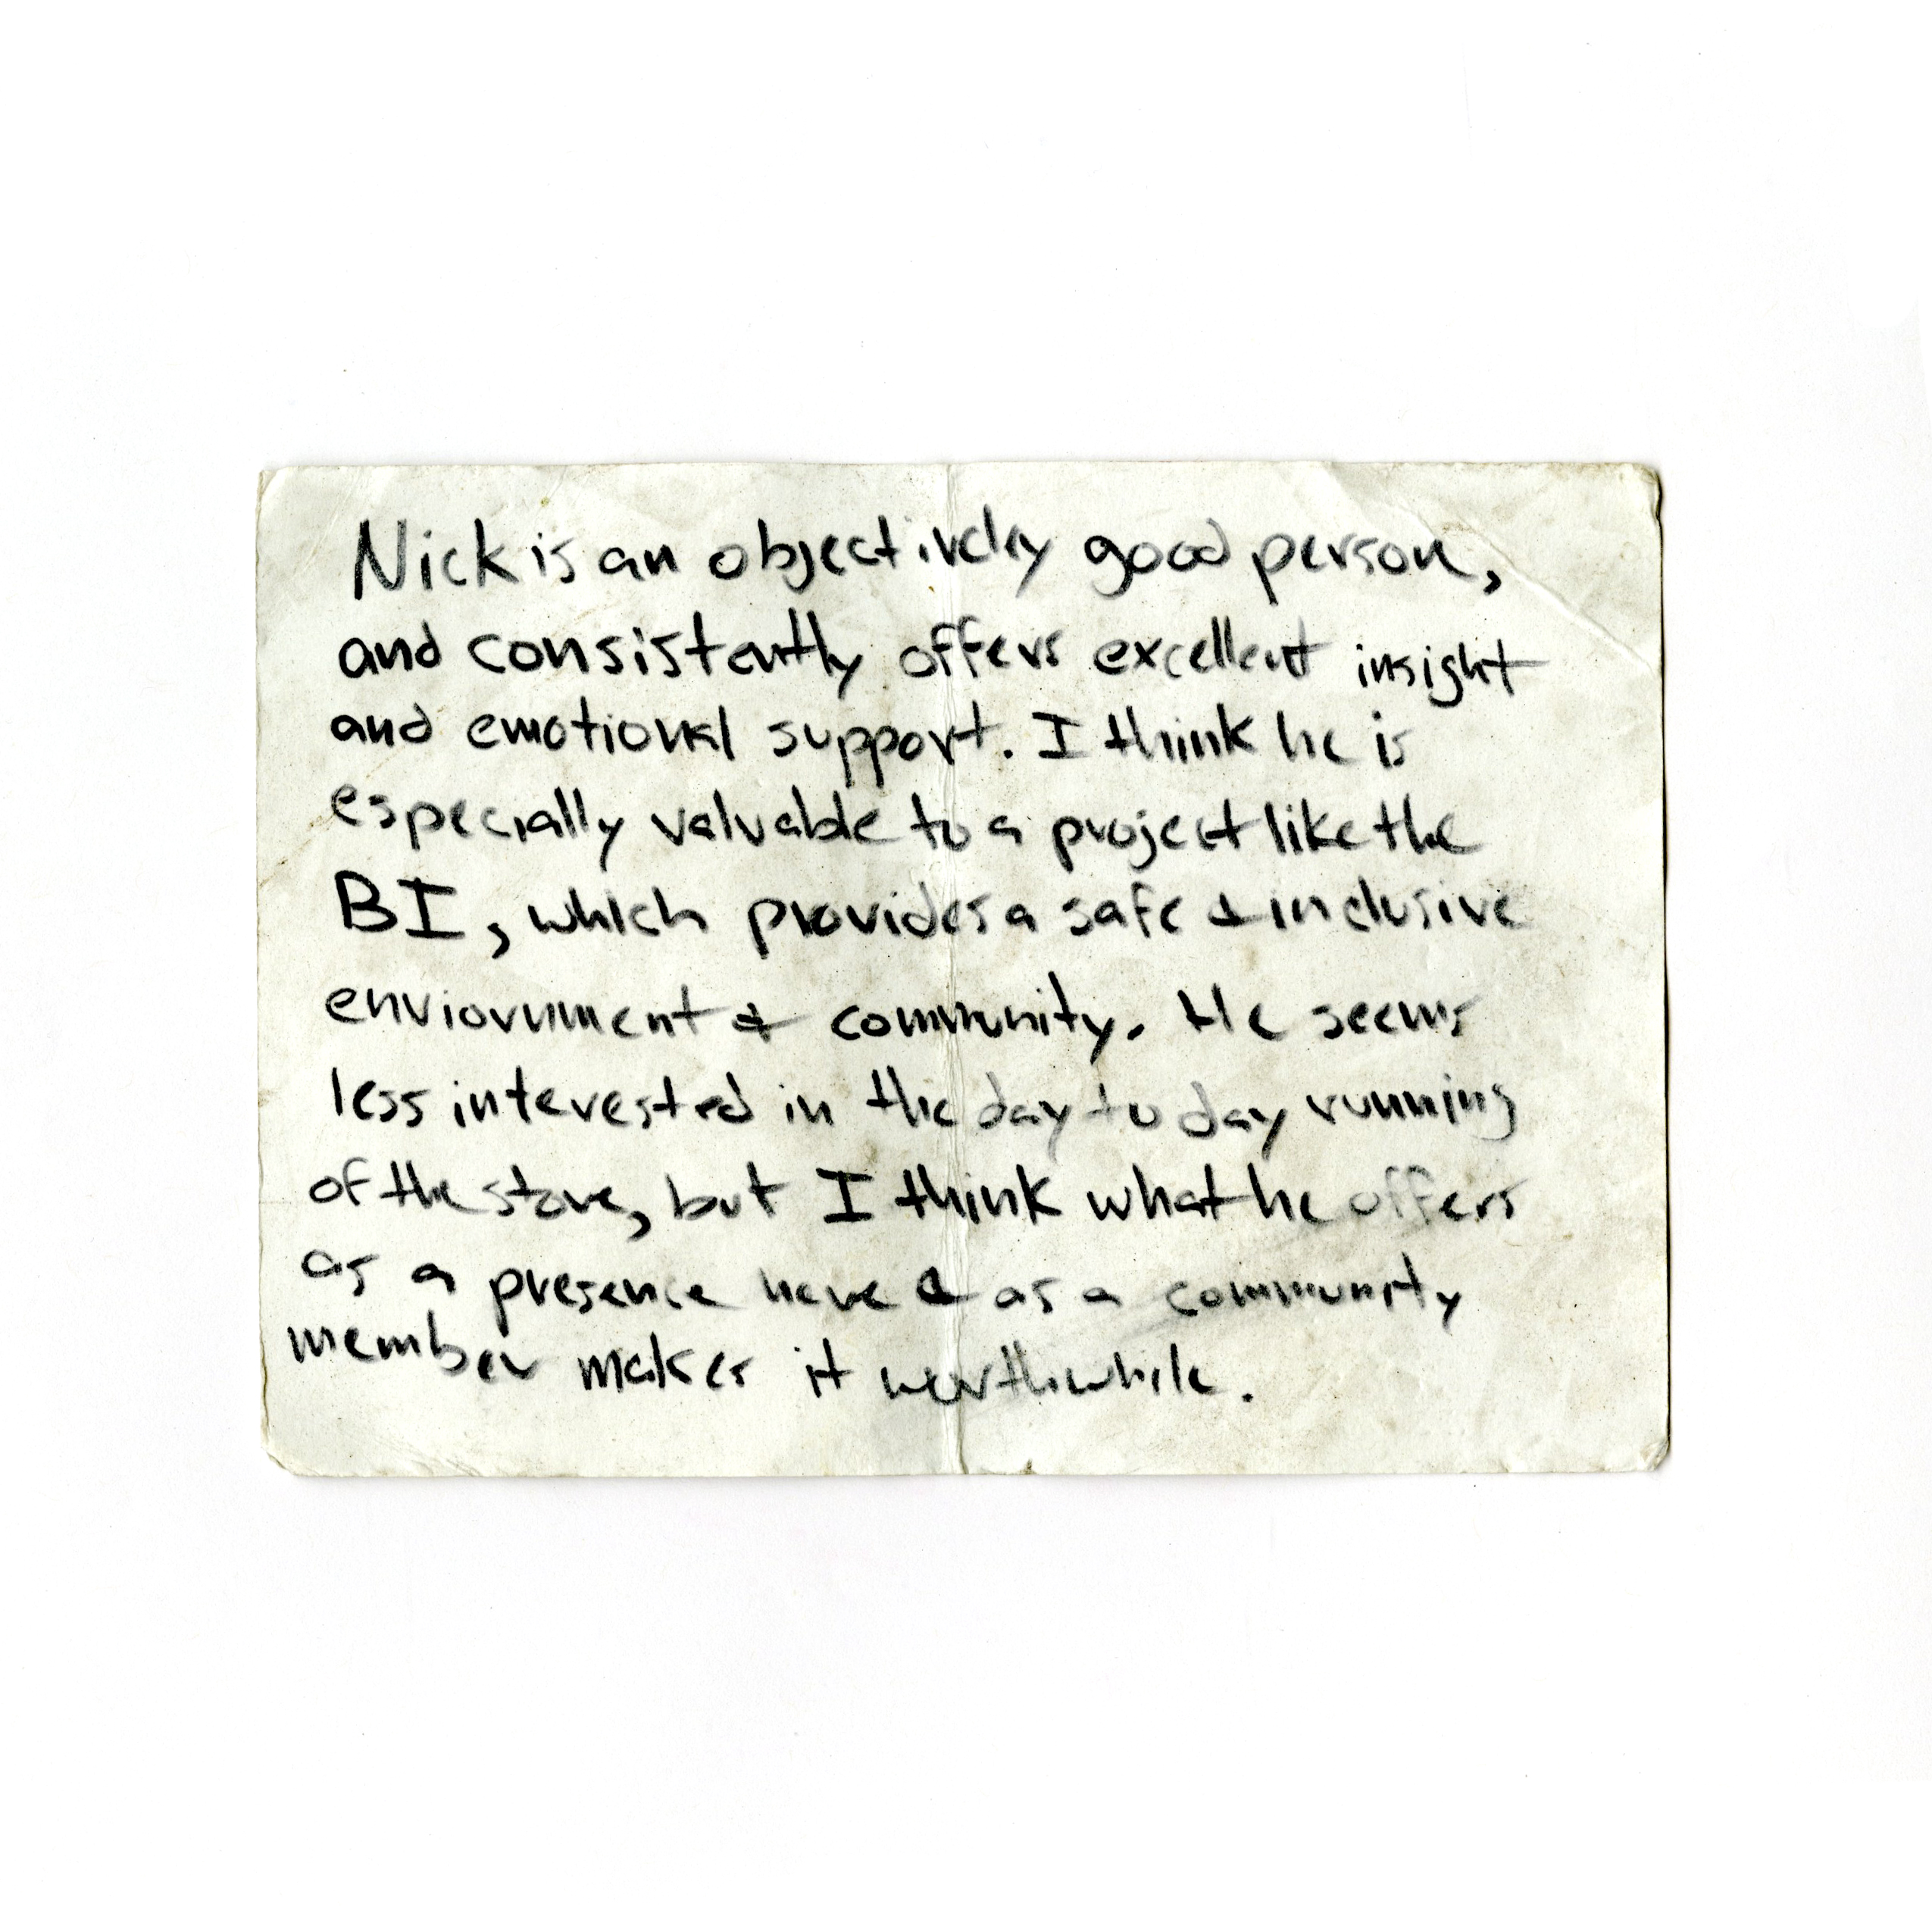 Nick is an objectively good person,
and consistently offers excellent insight
and emotional support. I think he is
especially valuable to a project like the
BI, which provides a safe & inclusive
enviornment & community. He seems
less interested in the day to day running
of the store, but I think what he offers
as a presence here & as a community
member makes it worthwhile.